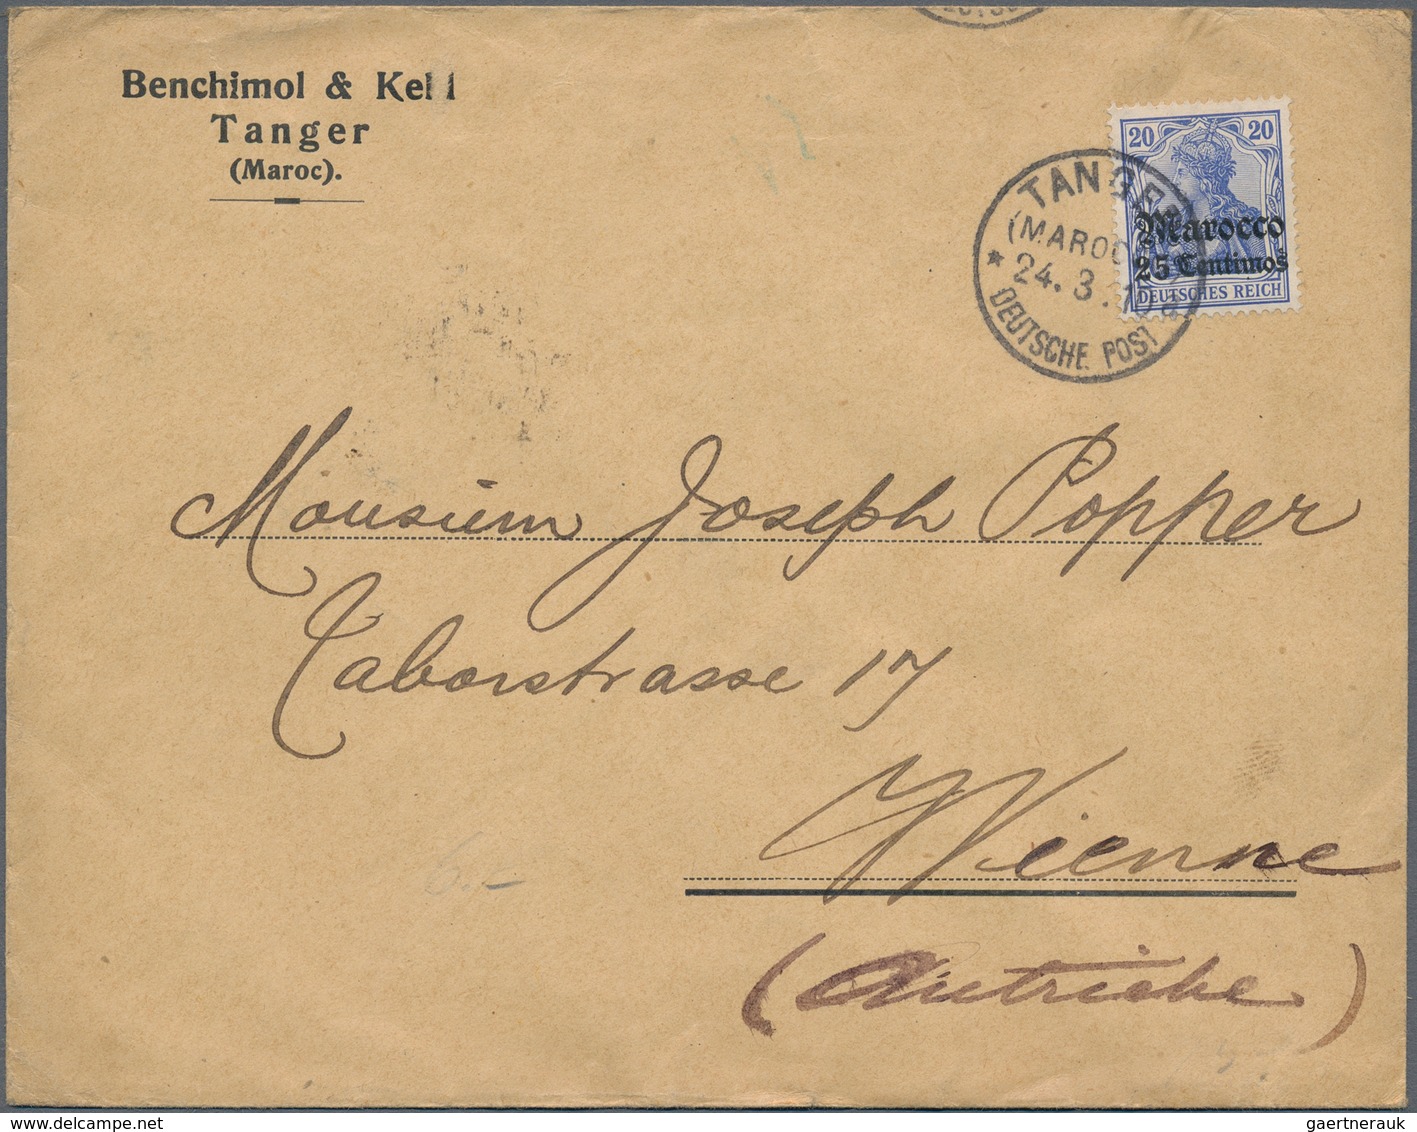 Benchimol & Kell
Tanger
(Maroc).
20 20
Marocco
25 Centimos
DEUTSCHES REICH
TANGER
(MAROC
24. 3.
DEUTSCHE POST
Monsieur Joseph Popper
Taborstrasse 17
Vienne
(Autriche)
6.-
gaertnerauk